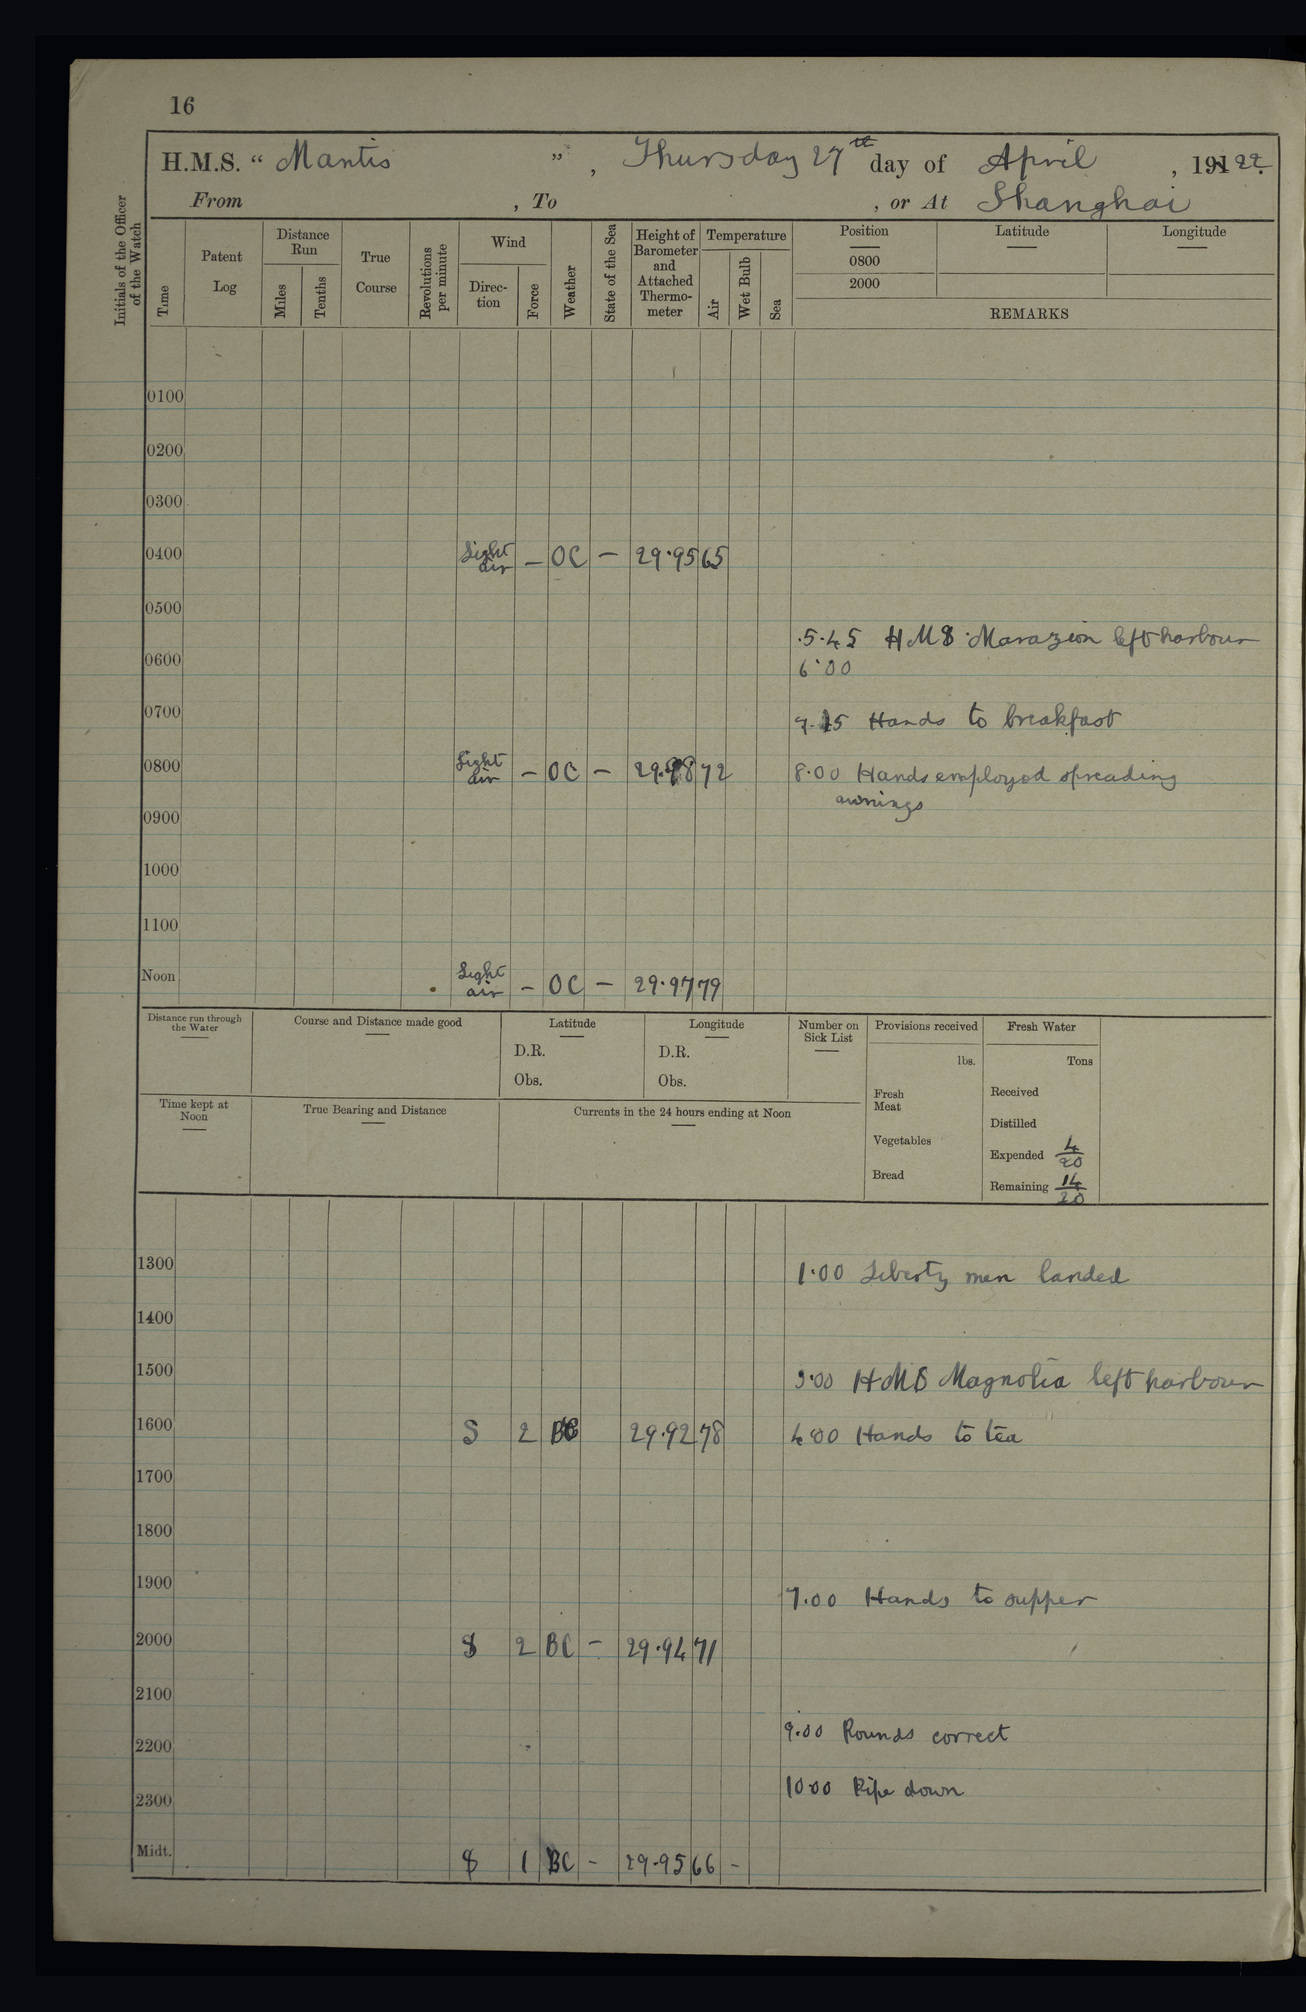 16
H.M.S. " Mantis ", Thursday 27th day of April, 1922.
From , To , or At Shanghai
Initials of the Officer of the Watch
Time
Patent Log
Distance Run
Miles
Tenths
True Course
Revolutions per minute
Wind
Direction
Force
Weather
State of the Sea
Height of Barometer and Attached Thermometer
Temperature
Air
Wet Bulb
Sea
Position
0800
2000
Latitude
Longitude
REMARKS
0100
0200
0300
0400 Light air – OC – 29.95 65
0500
5.45 HMS Marazion left harbour
0600 6.00
0700 7.15 Hands to breakfast
0800 Light air – OC – 29.98 72 8.00 Hands employed spreading
awnings
0900
1000
1100
Noon Light air – OC – 29.97 79
Distance run through the Water
Course and Distance made good
Latitude
D.R.
Obs.
Longitude
D.R.
Obs.
Number on Sick List
Provisions received
lbs.
Fresh Meat
Vegetables
Bread
Fresh Water
Tons
Received
Distilled
Expended 4/20
Remaining 14/20
Time kept at Noon
True Bearing and Distance
Currents in the 24 hours ending at Noon
1300 1.00 Liberty men landed
1400
1500 3.00 HMS Magnolia left harbour
1600 S 2 BC 29.92 78 4.00 Hands to tea
1700
1800
1900 7.00 Hands to supper
2000 S 2 BC – 29.94 71
2100
9.00 Rounds correct
2200
10.00 Pipe down
2300
Midt. S 1 BC – 29.95 66 –